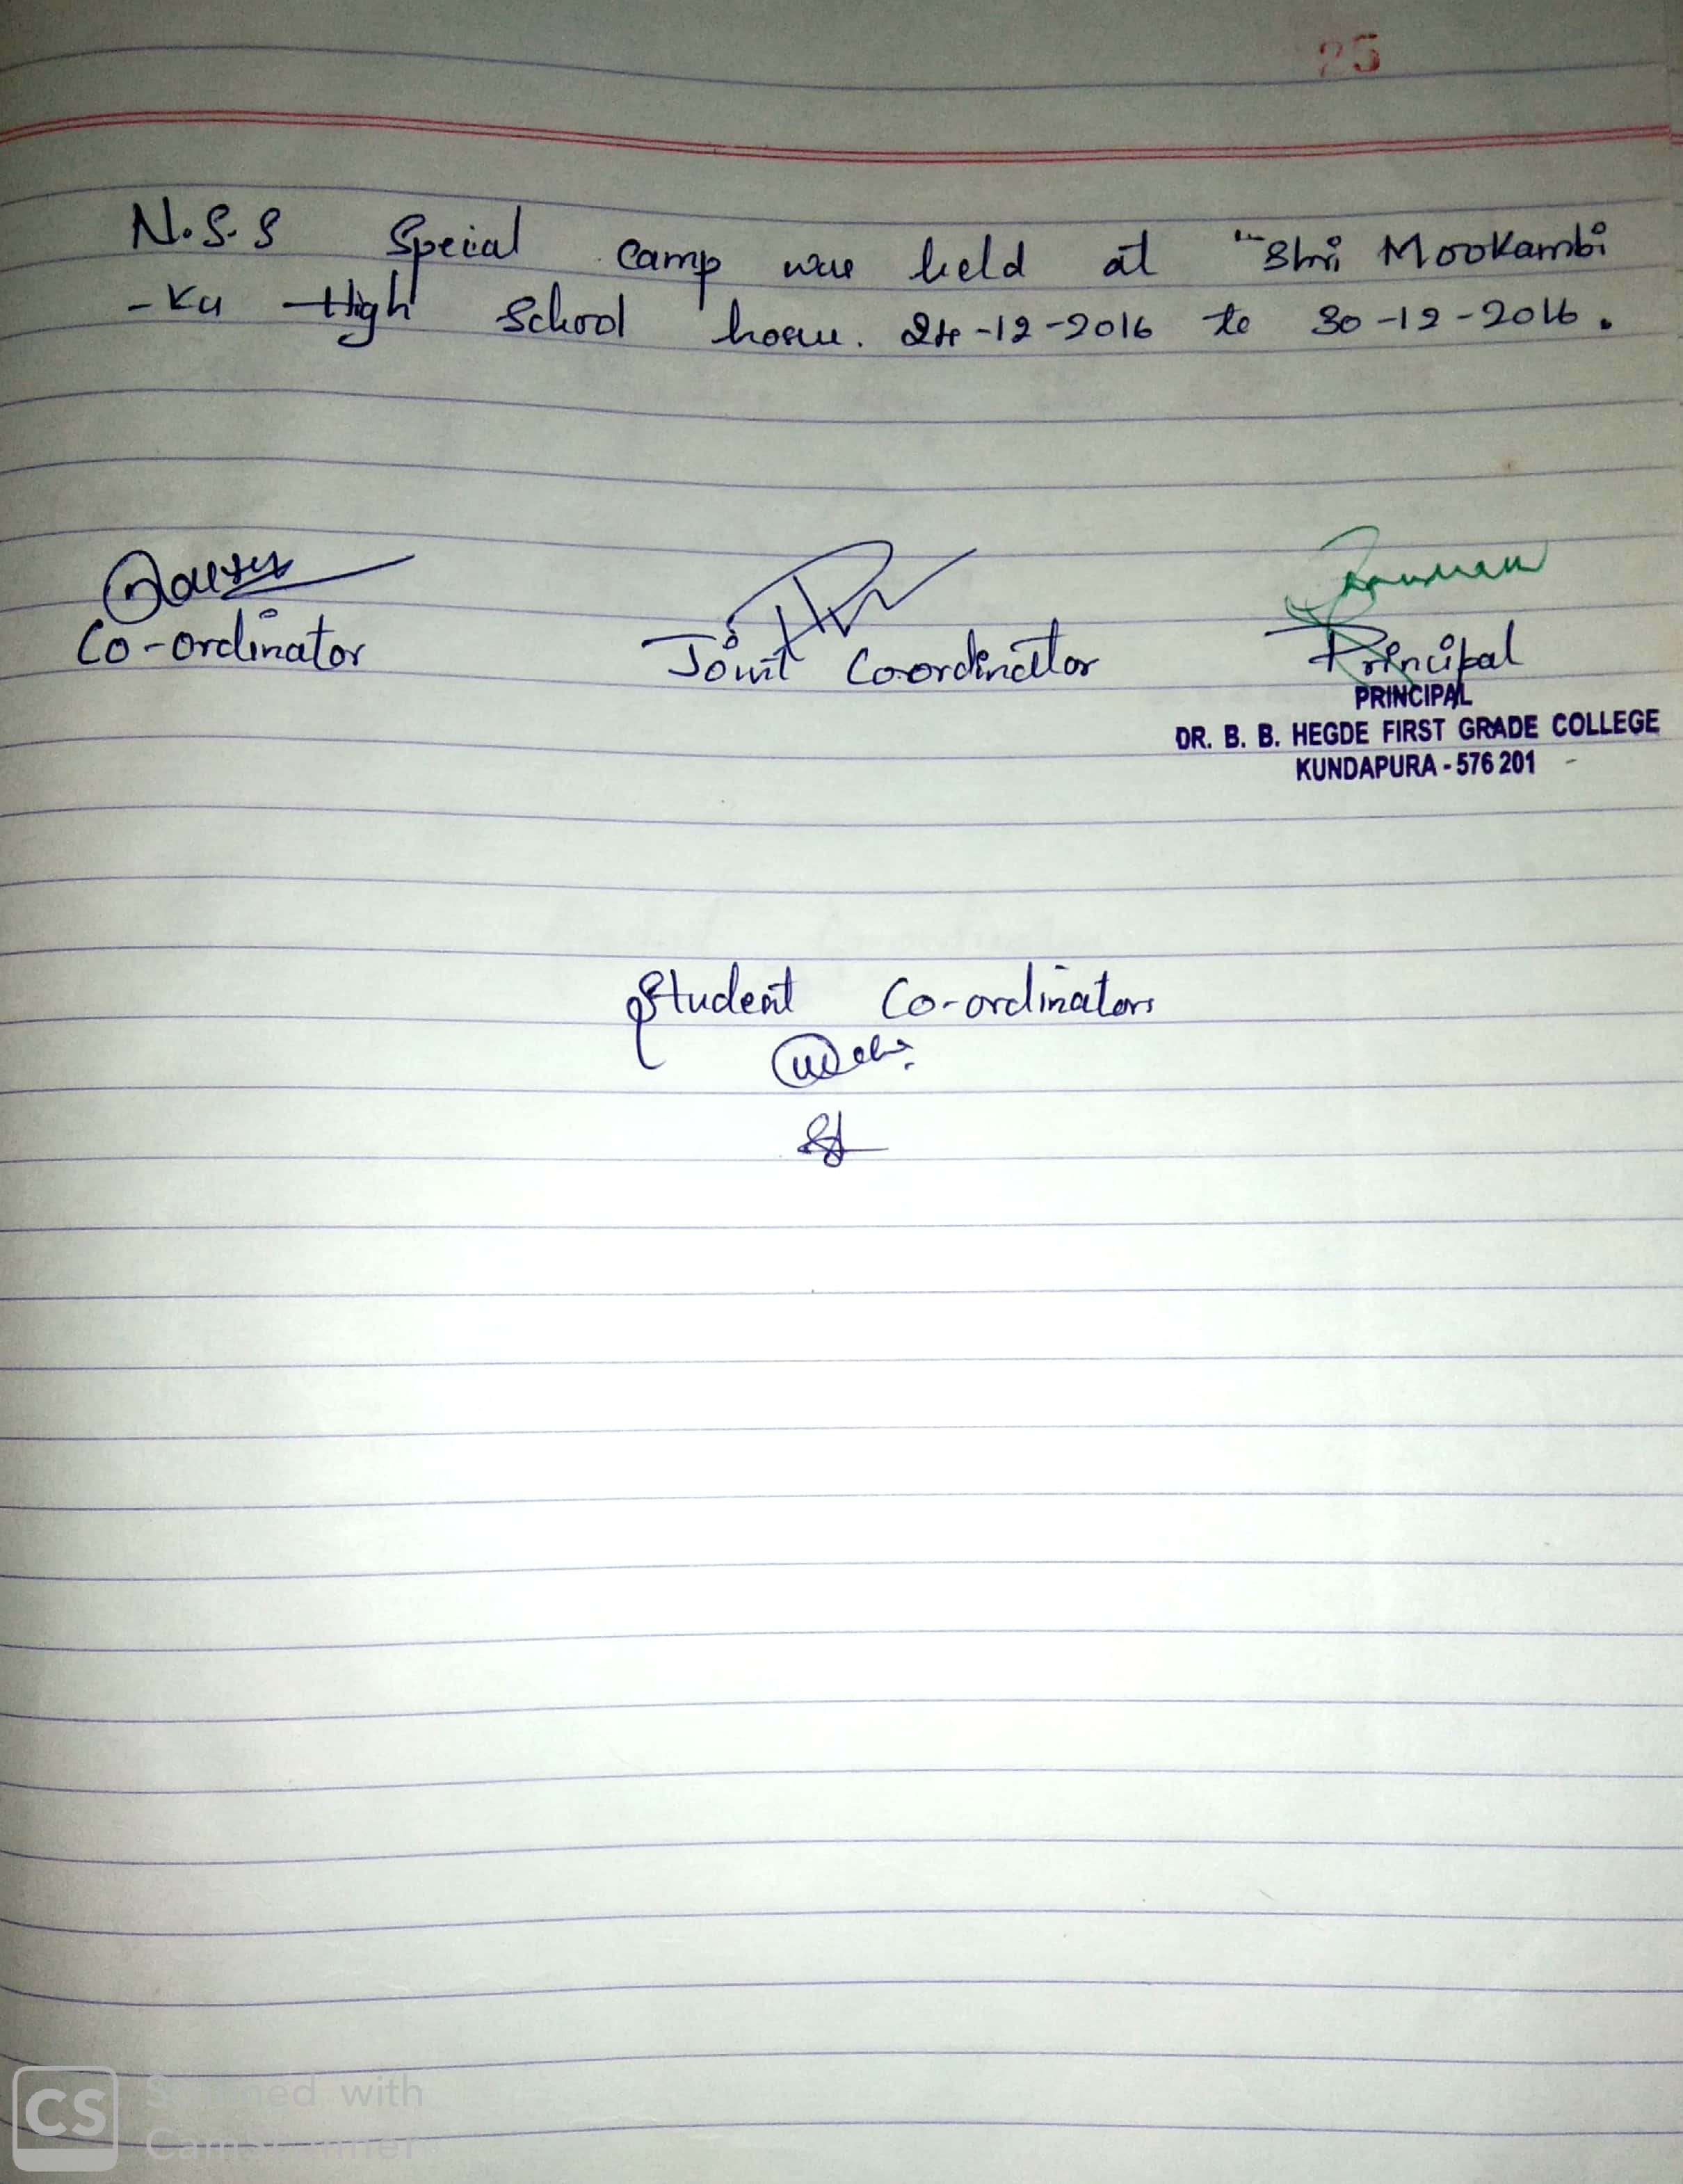 25
N.S.S Special camp was held at "Shri Mookambi
-Ka High School hosur. 24-12-2016 to 30-12-2016.
Co-ordinator Joint Coordinator Principal
PRINCIPAL
DR. B. B. HEGDE FIRST GRADE COLLEGE
KUNDAPURA - 576 201
Student Co-ordinators
CS Scanned with
CamScanner